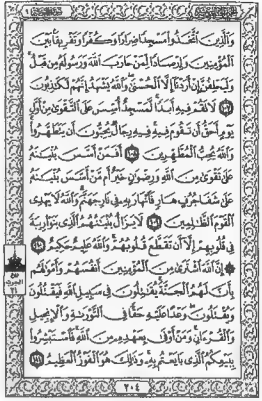 وَٱلَّذِينَ ٱتَّخَذُوا۟ مَسْجِدًا ضِرَارًا وَكُفْرًا وَتَفْرِيقًۢا بَيْنَ
ٱلْمُؤْمِنِينَ وَإِرْصَادًا لِّمَنْ حَارَبَ ٱللَّهَ وَرَسُولَهُۥ مِن قَبْلُ
وَلَيَحْلِفُنَّ إِنْ أَرَدْنَآ إِلَّا ٱلْحُسْنَىٰ وَٱللَّهُ يَشْهَدُ إِنَّهُمْ لَكَٰذِبُونَ
١٠٧ لَا تَقُمْ فِيهِ أَبَدًا لَّمَسْجِدٌ أُسِّسَ عَلَى ٱلتَّقْوَىٰ مِنْ أَوَّلِ
يَوْمٍ أَحَقُّ أَن تَقُومَ فِيهِ فِيهِ رِجَالٌ يُحِبُّونَ أَن يَتَطَهَّرُوا۟
وَٱللَّهُ يُحِبُّ ٱلْمُطَّهِّرِينَ ١٠٨ أَفَمَنْ أَسَّسَ بُنْيَٰنَهُۥ
عَلَىٰ تَقْوَىٰ مِنَ ٱللَّهِ وَرِضْوَٰنٍ خَيْرٌ أَم مَّنْ أَسَّسَ بُنْيَٰنَهُۥ
عَلَىٰ شَفَا جُرُفٍ هَارٍ فَٱنْهَارَ بِهِۦ فِى نَارِ جَهَنَّمَ وَٱللَّهُ لَا يَهْدِى
ٱلْقَوْمَ ٱلظَّٰلِمِينَ ١٠٩ لَا يَزَالُ بُنْيَٰنُهُمُ ٱلَّذِى بَنَوْا۟ رِيبَةً
فِى قُلُوبِهِمْ إِلَّآ أَن تَقَطَّعَ قُلُوبُهُمْ وَٱللَّهُ عَلِيمٌ حَكِيمٌ ١١٠
۞ إِنَّ ٱللَّهَ ٱشْتَرَىٰ مِنَ ٱلْمُؤْمِنِينَ أَنفُسَهُمْ وَأَمْوَٰلَهُم
بِأَنَّ لَهُمُ ٱلْجَنَّةَ يُقَٰتِلُونَ فِى سَبِيلِ ٱللَّهِ فَيَقْتُلُونَ
وَيُقْتَلُونَ وَعْدًا عَلَيْهِ حَقًّا فِى ٱلتَّوْرَىٰةِ وَٱلْإِنجِيلِ
وَٱلْقُرْءَانِ وَمَنْ أَوْفَىٰ بِعَهْدِهِۦ مِنَ ٱللَّهِ فَٱسْتَبْشِرُوا۟
بِبَيْعِكُمُ ٱلَّذِى بَايَعْتُم بِهِۦ وَذَٰلِكَ هُوَ ٱلْفَوْزُ ٱلْعَظِيمُ ١١١
ربع
الحزب
٢١
٢٠٤